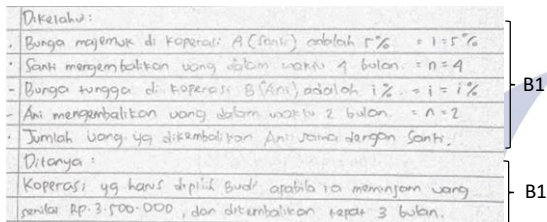 Diketahui:
• Bunga majemuk di koperasi A (Santi) adalah 5% = i = 5%
• Santi mengembalikan uang dalam waktu 4 bulan. = n = 4
- Bunga tunggal di koperasi B (Ani) adalah i%. = i = i%
- Ani mengembalikan uang dalam waktu 2 bulan. = n = 2
• Jumlah uang yg dikembalikan Ani sama dengan Santi.
B1
Ditanya:
Koperasi yg harus dipilih Budi apabila ia meminjam uang
senilai Rp. 3.500.000, dan dikembalikan tepat 3 bulan.
B1